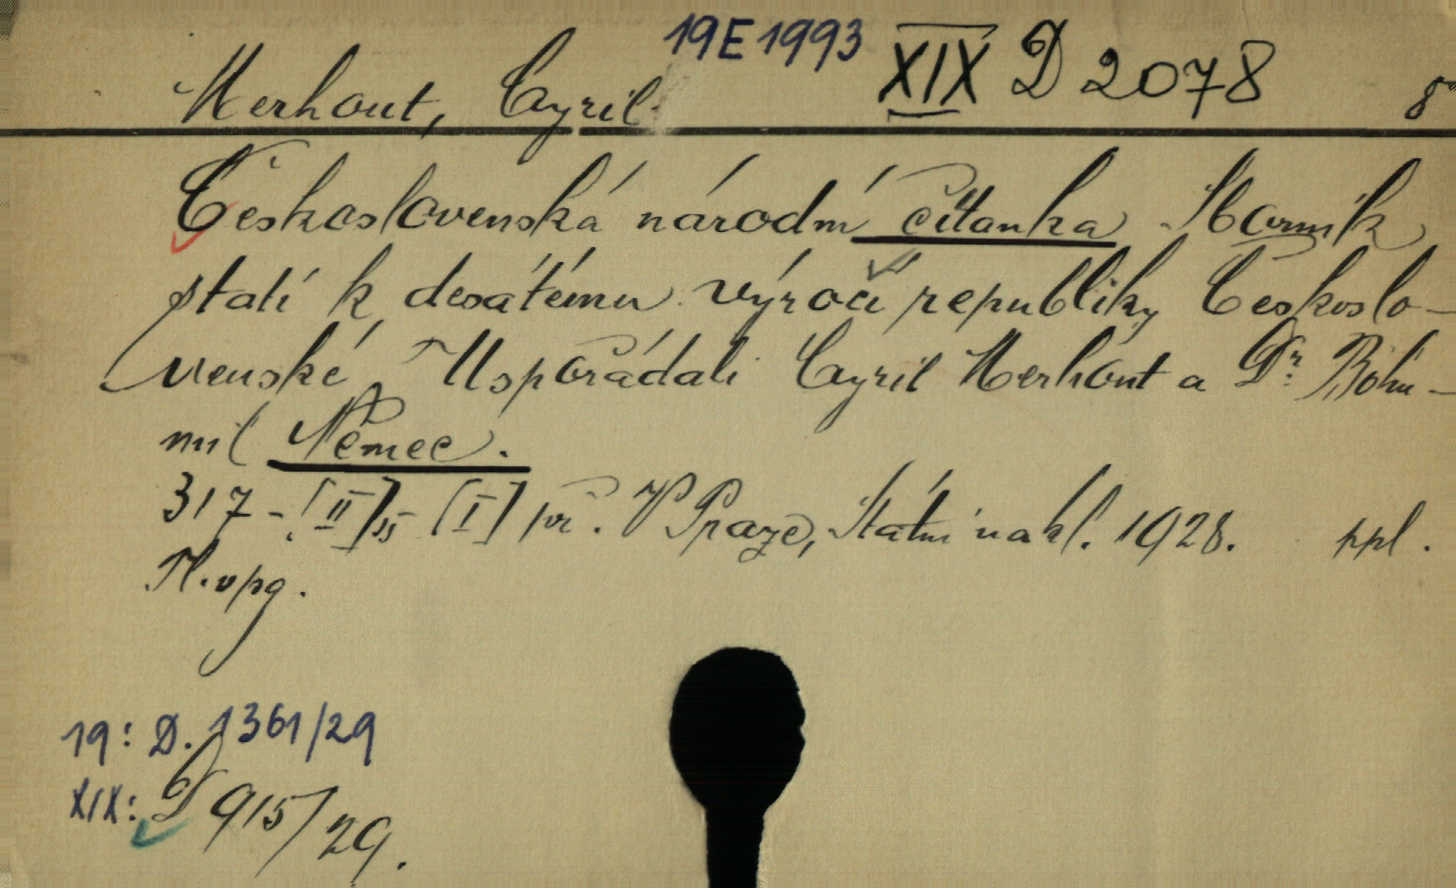 19E1993 XIX D 2078
Merhout, Cyril. 8°
Československá národní čítanka. Sborník
statí k desátému výročí republiky Českoslo-
venské. Uspořádali Cyril Merhout a Dr. Bohu-
mil Němec.
317-[II]s-[I] př. V Praze, Státní nakl. 1928. ppl.
Tl. v pg.
19: D. 1361/29
XIX: D 915/29.